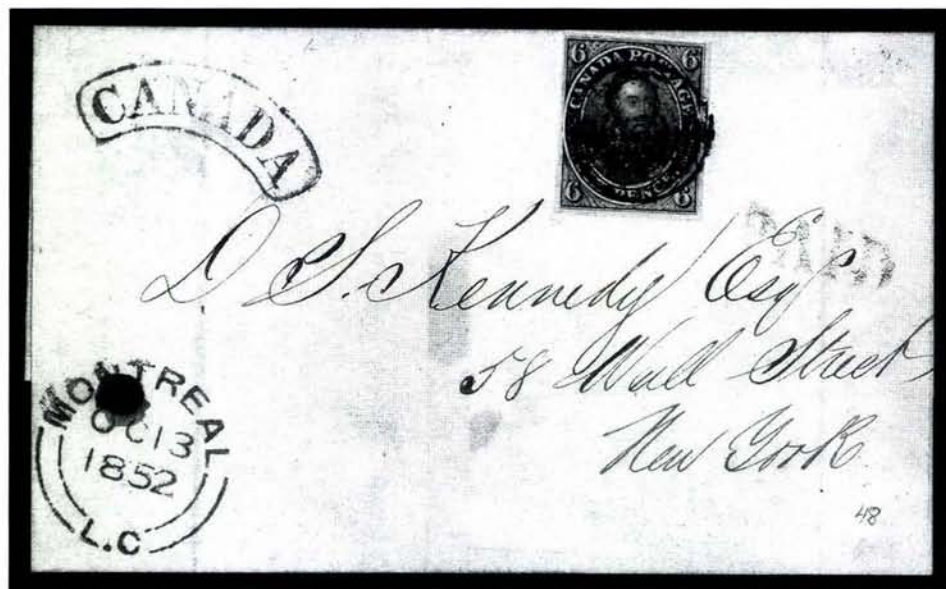 CANADA
6 6
CANADA POSTAGE
PENCE
6 6
PAID
D. S. Kennedy Esqr
58 Wall Street
New York
MONTREAL
OC 13
1852
L.C
48